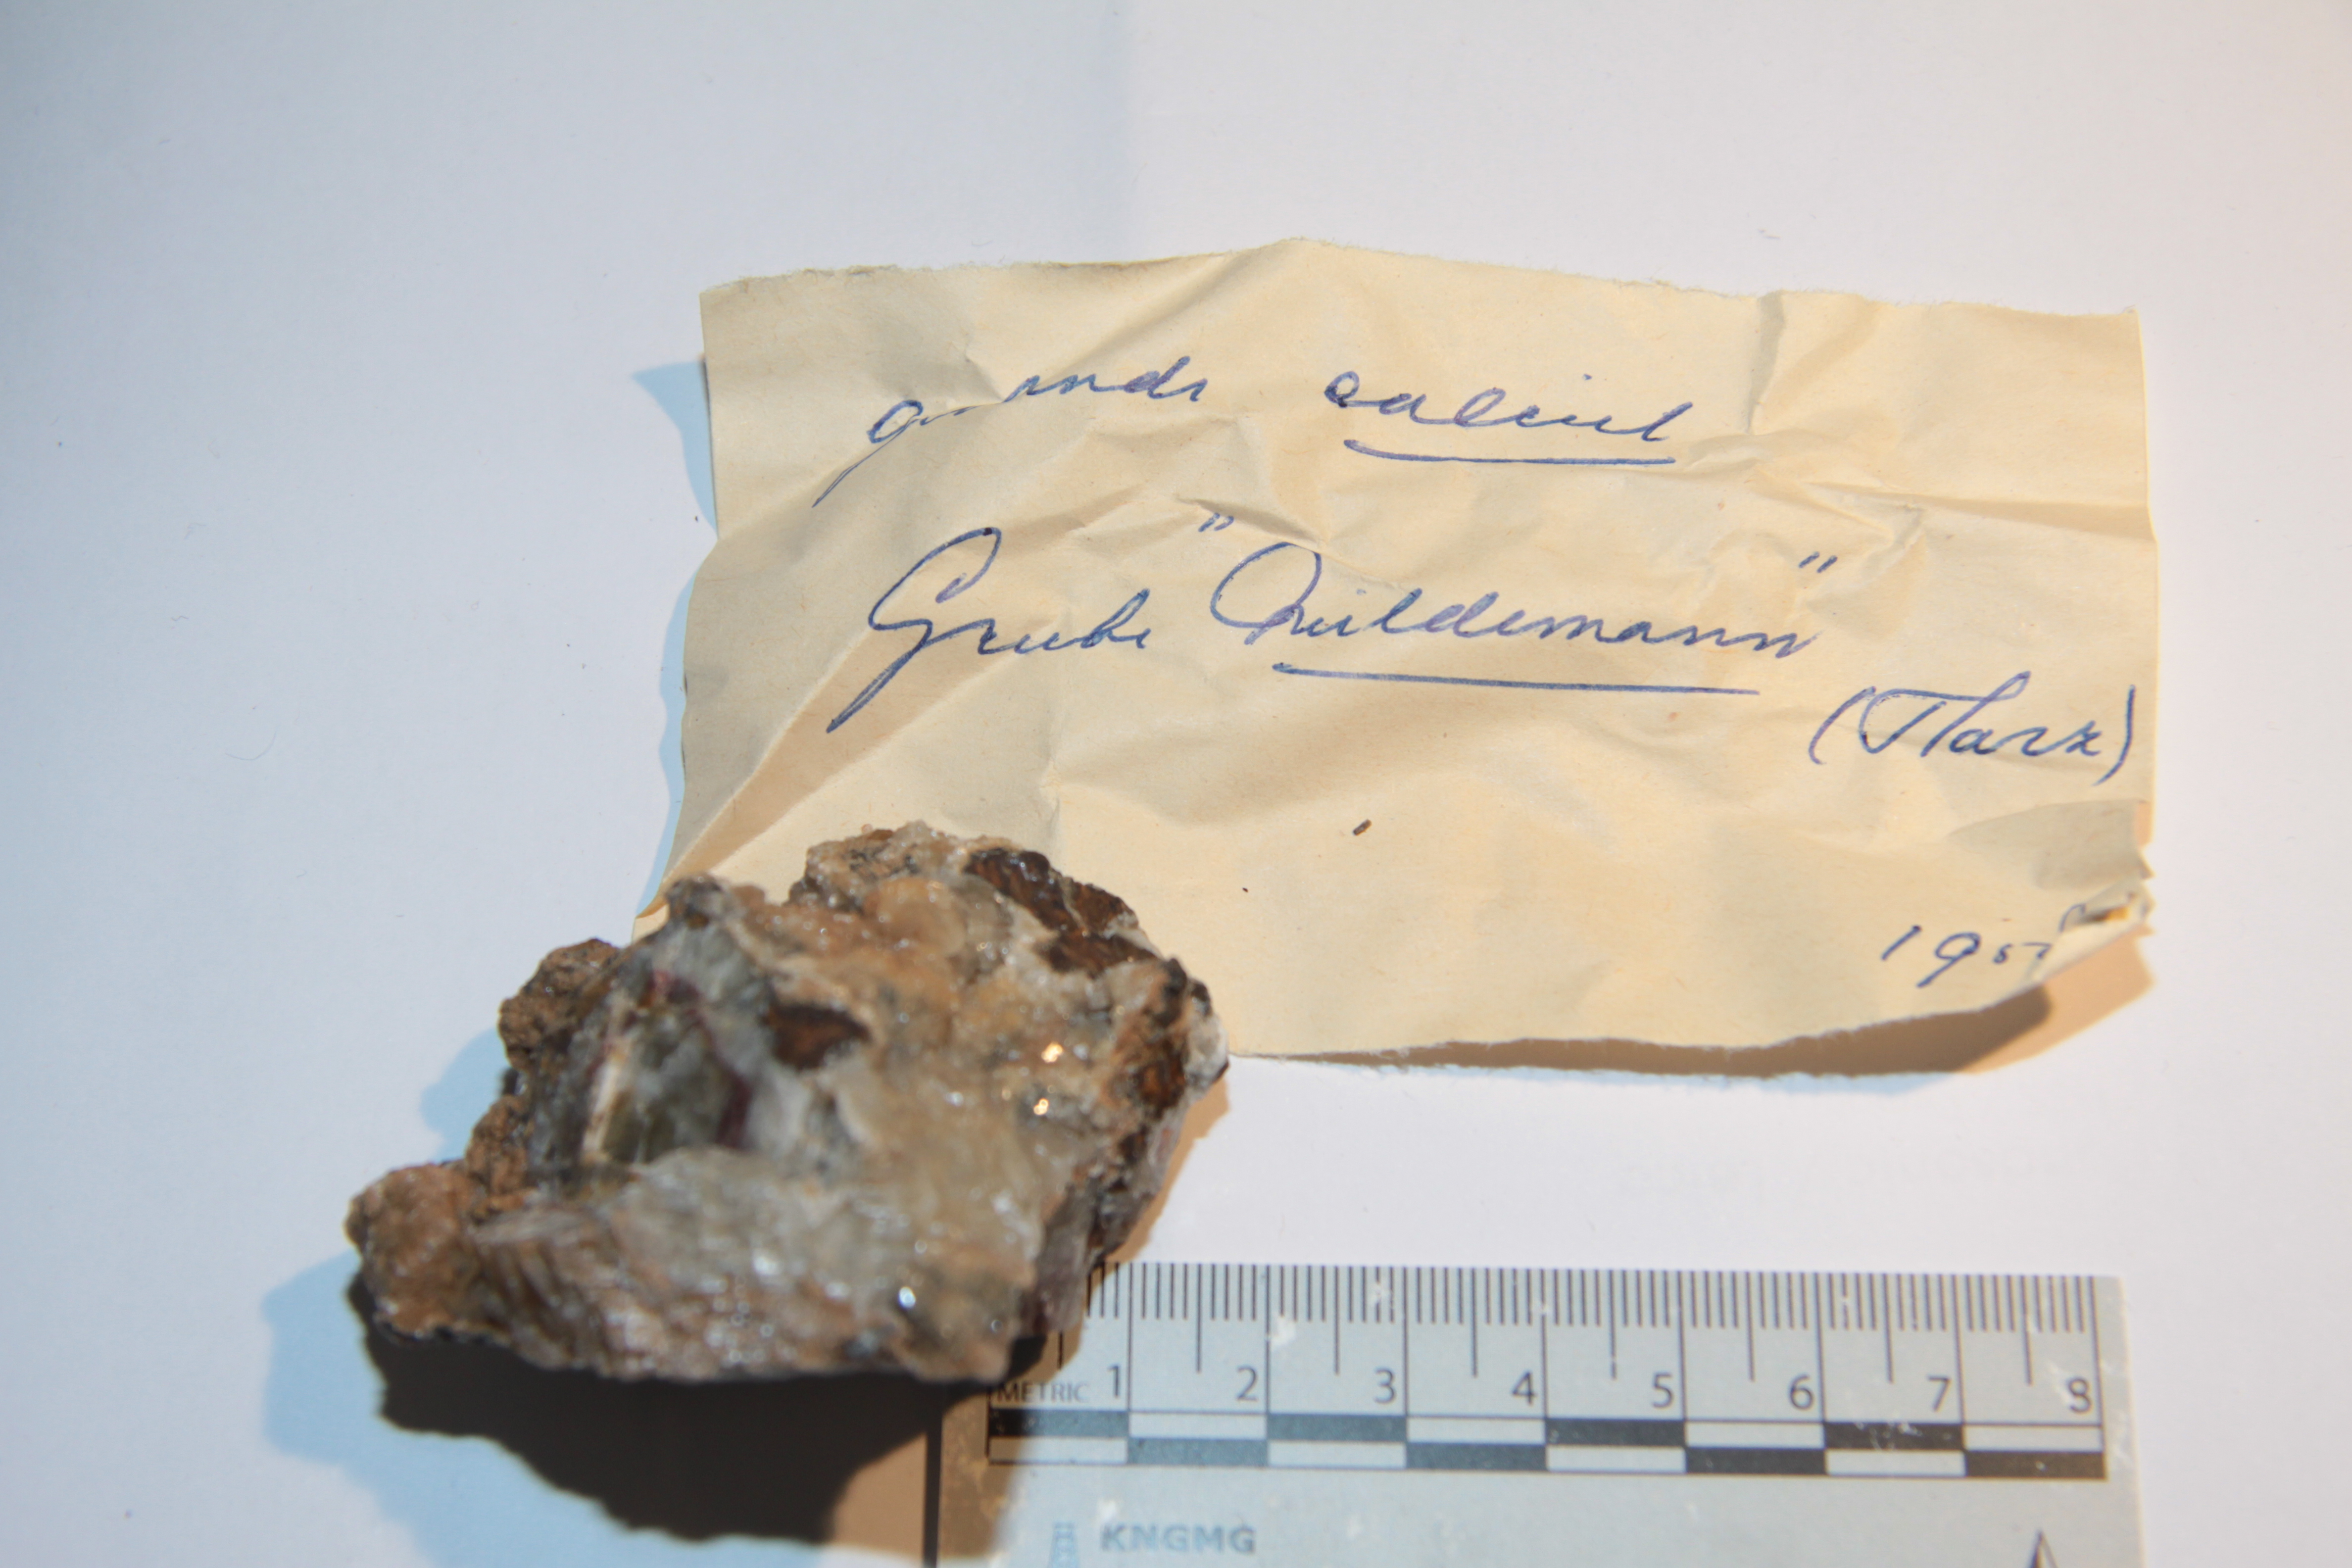 calciet
Grube "Wildemann"
(Harz)
METRIC 1 2 3 4 5 6 7 8
KNGMG